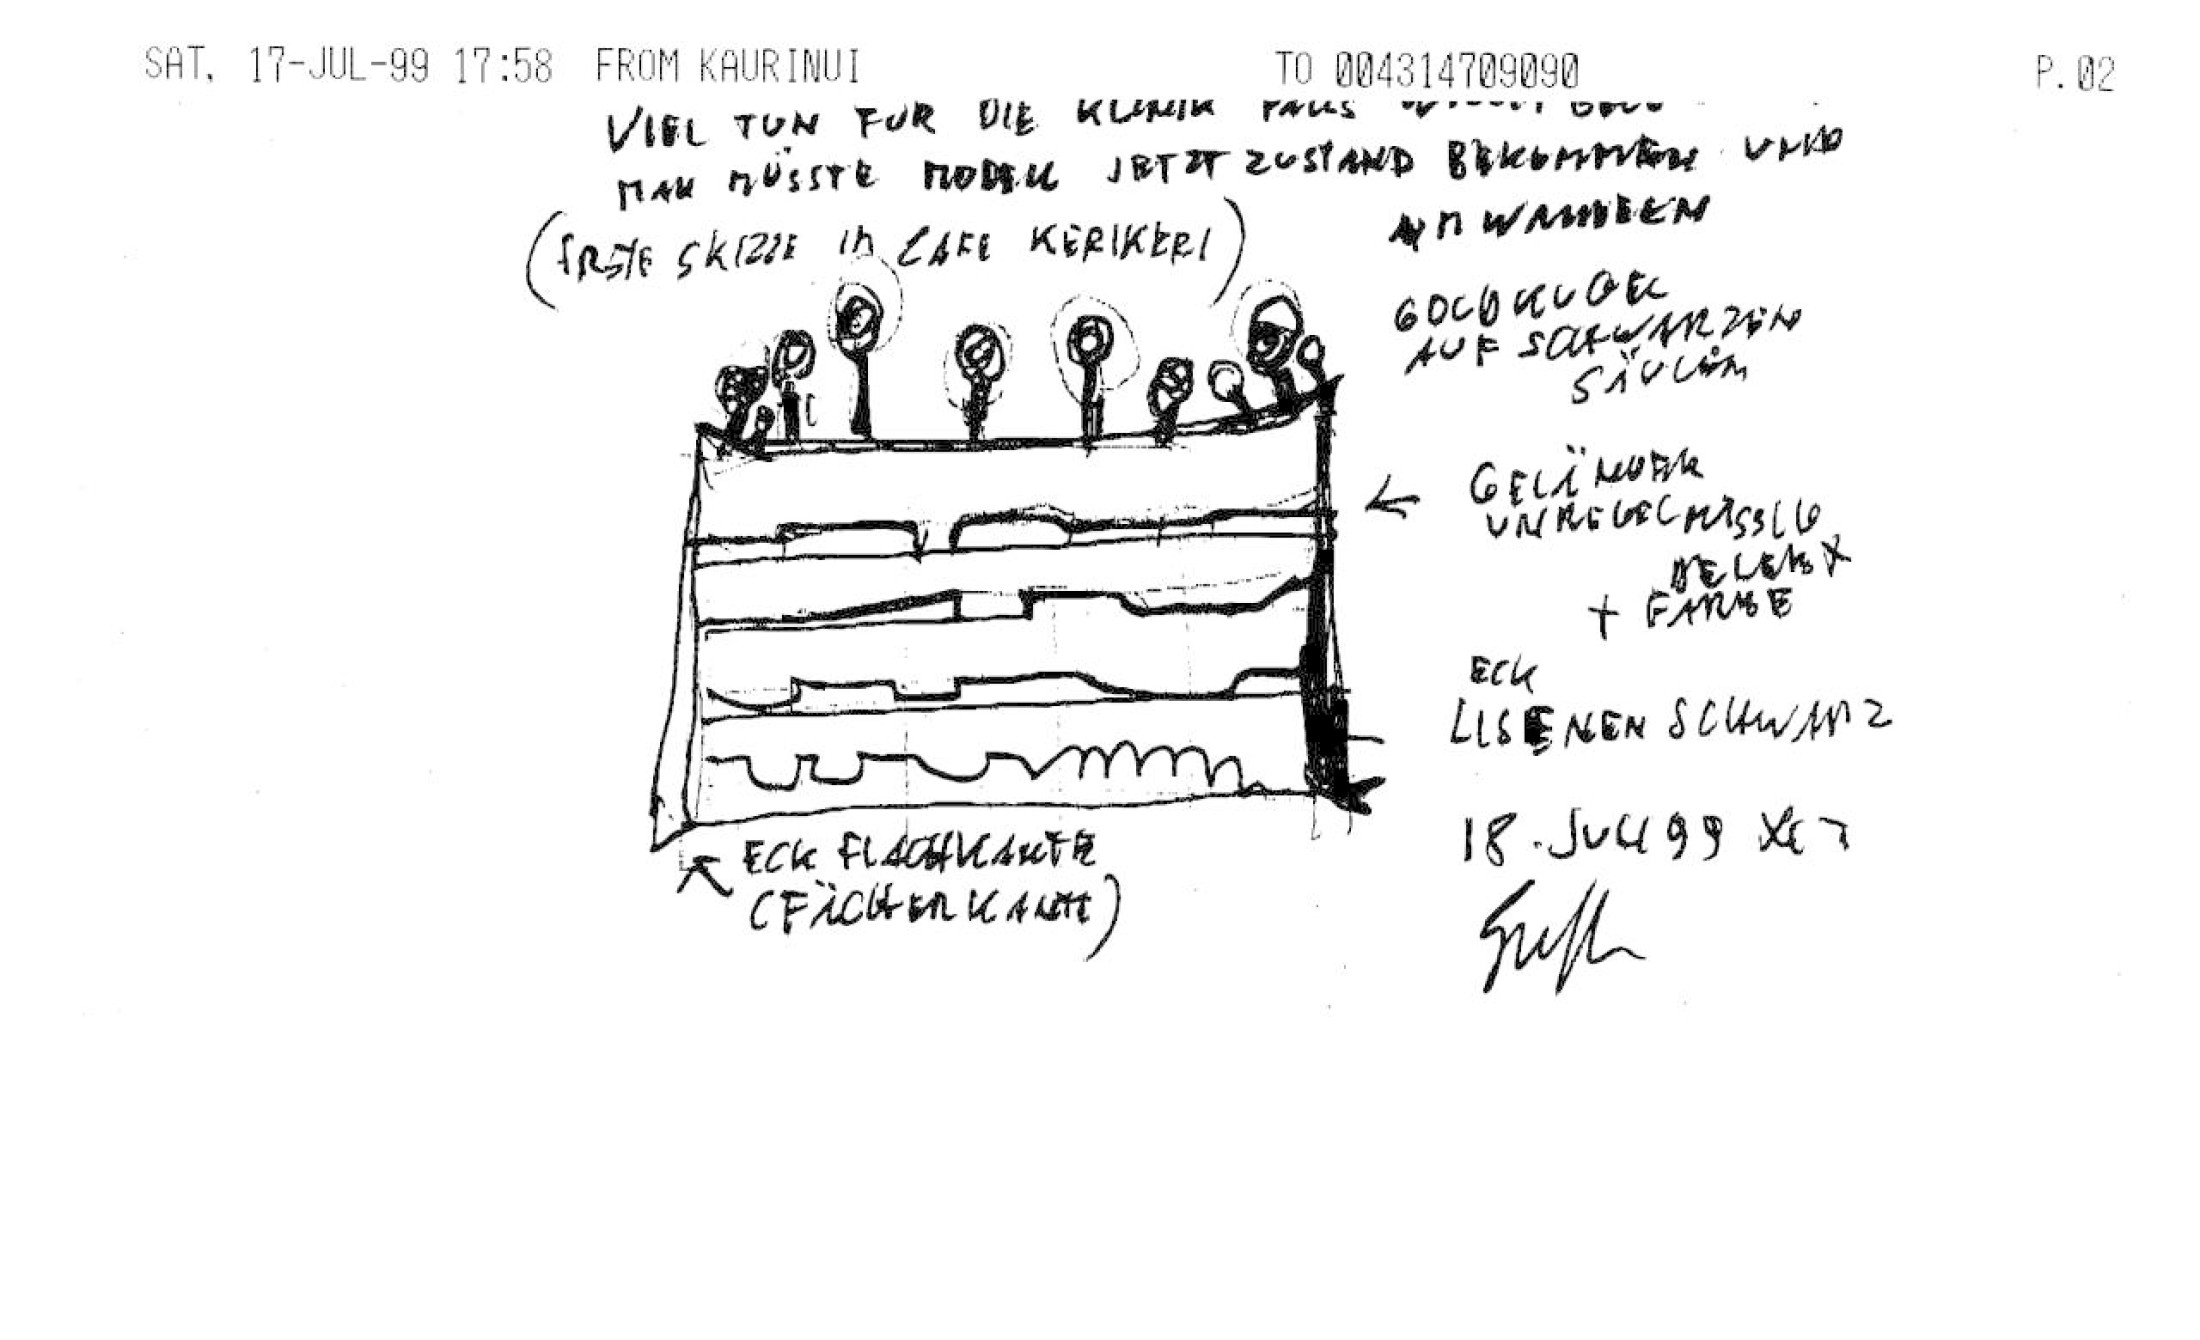 SAT, 17-JUL-99 17:58 FROM KAURINUI TO 004314709090 P.02
VIEL TUN FUR DIE KLINIK FALLS
MAN MÜSSTE MODELL JETZT ZUSTAND BEKOMMEN UND
(ERSTE SKIZZE IN CAFE KERIKERI)
GOLDKUGEL
AUF SCHWARZEN
SÄULEN
← GELÄNDER
UNREGELMÄSSIG
BELEBT
+ FARBE
ECK
LISENEN SCHWARZ
18. JULI 99
ECK FLACHKANTE
(FÄCHERKANTE)